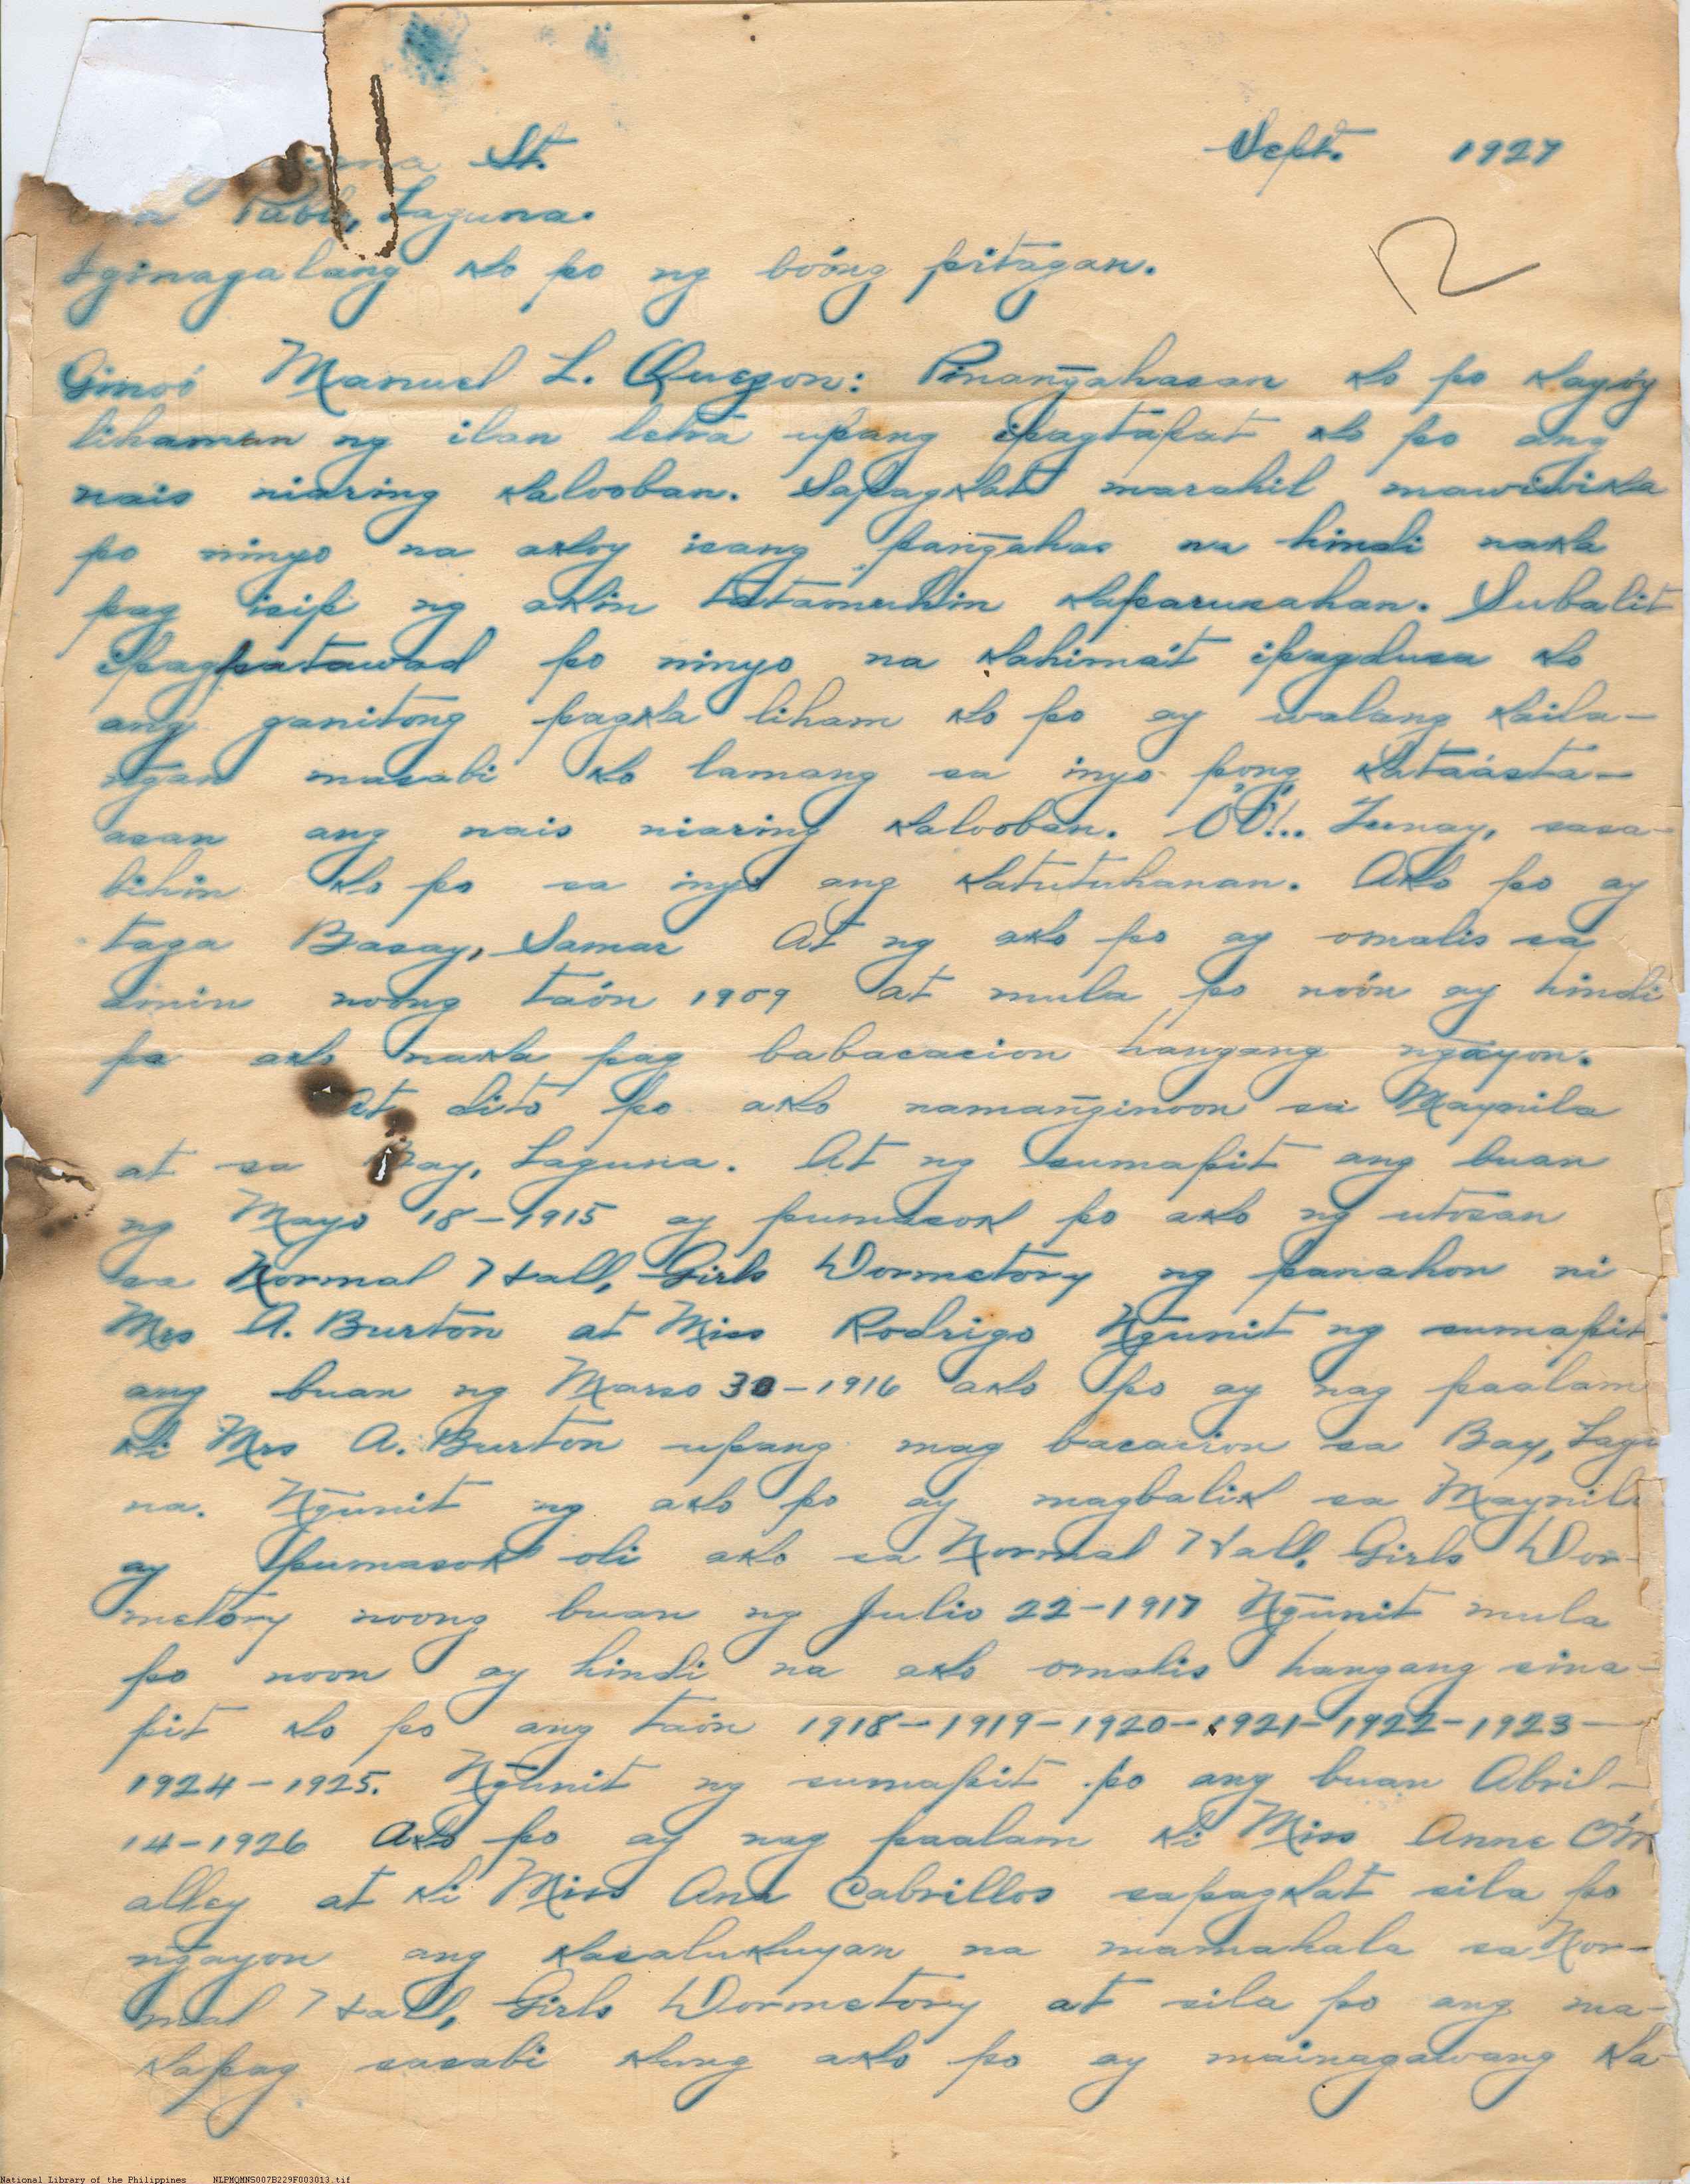 St. Sept. 1927
Pablo, Laguna.
Iginagalang ko po ng boóng pitagan.
Ginoó Manuel L. Quezon: Pinang̃ahasan ko po kayóy
lihaman ng ilan letra upang ipagtapat ko po ang
nais niaring kalooban. Sapagkat marahil mawiwika
po ninyo na akoy isang pang̃ahas na hindi naka
pag isip ng akin tatamuhin kaparusahan. Subalit
ipagpatawad po ninyo na kahima't ipagdusa ko
ang ganitong pagka liham ko po ay walang kaila-
ng̃an masabi ko lamang sa inyo pong kataásta-
asan ang nais niaring kalooban. ÓÓ!.. Tunay, sasa-
bihin ko po sa inyo ang katutuhanan. Ako po ay
taga Basay, Samar At ng ako po ay omalis sa
amin noong taón 1909 at mula po noón ay hindi
pa ako naka pag babacacion hangang ng̃ayon.
At dito po ako namang̃inoon sa Maynila
at sa Bay, Laguna. At ng sumapit ang buan
ng Mayo 18-1915 ay pumasok po ako ng utosan
sa Normal Hall, Girls Dormetory ng panahon ni
Mrs A. Burton at Miss Rodrigo Ng̃unit ng sumapit
ang buan ng Marso 30-1916 ako po ay nag paalam
ki Mrs A. Burton upang mag bacacion sa Bay, Lagu
na. Ng̃unit ng ako po ay magbalik sa Maynila
ay pumasok oli ako sa Normal Hall, Girls Dor-
metory noong buan ng Julio 22-1917 Ng̃unit mula
po noon ay hindi na ako omalis hangang sina-
pit ko po ang taón 1918-1919-1920-1921-1922-1923-
1924-1925. Ng̃unit ng sumapit po ang buan Abril-
14-1926 Ako po ay nag paalam ki Miss Anne O'm
alley at ki Miss Ana Cabrillos sapagkat sila po
ng̃ayon ang kasalukuyan na mamahala sa Nor-
mal Hall, Girls Dormetory at sila po ang ma-
kapag sasabi kung ako po ay mainagawang ka-
National Library of the Philippines NLPMQMNS007B229F003013.tif